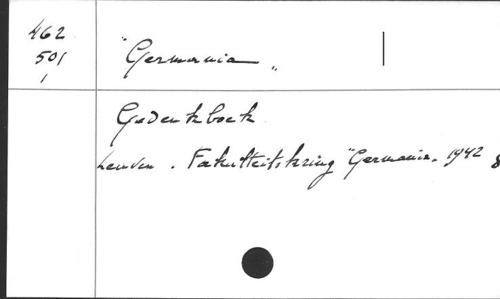 462
501
1
"Germania"
Gedenkboek
Leuven. Fakulteitskring "Germania" 1942 8